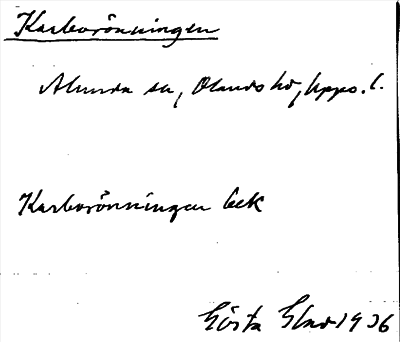 Karborönningen
Alunda sn, Olands hd, Upps. l.
Karborönningen bek
Gösta Elvd 1936